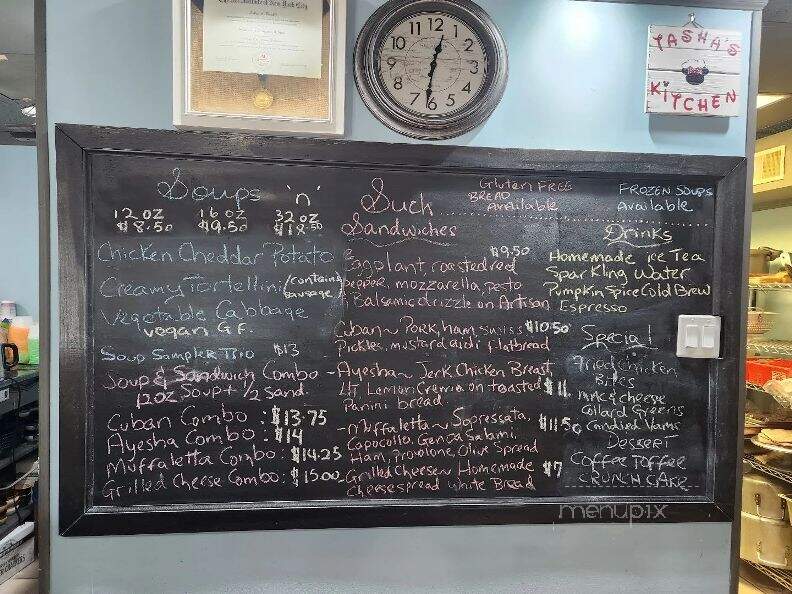 of New York City
12
11 1
10 2
9 3
8 4
7 5
6
TASHA'S
KITCHEN
Soups 'n' Such
12 oz 16 oz 32 oz
$8.50 $9.50 $18.50
Chicken Cheddar Potato
Creamy Tortellini (contains sausage)
Vegetable Cabbage
vegan G.F.
Soup Sampler Trio $13
Soup & Sandwich Combo
12oz Soup + 1/2 Sand.
Cuban Combo : $13.75
Ayesha Combo : $14
Muffaletta Combo : $14.25
Grilled Cheese Combo : $15.00
Gluten FREE
BREAD
Available
FROZEN SOUPS
Available
Sandwiches
$9.50
Eggplant, roasted red
pepper, mozzarella, pesto
Balsamic drizzle on Artisan
Cuban ~ Pork, ham, Swiss $10.50
Pickles, mustard aioli flatbread
- Ayesha ~ Jerk Chicken Breast,
LT, Lemon Crema on toasted $11
Panini bread.
- Muffaletta ~ Sopressata, $11.50
Capocollo, Genoa Salami,
Ham, provolone, Olive Spread
- Grilled Cheese ~ Homemade $7
Cheese spread White Bread
Drinks
Homemade ice Tea
Sparkling Water
Pumpkin Spice Cold Brew
Espresso
Special
Fried Chicken
Bites
Mac & cheese
Collard Greens
Candied Yams
Dessert
Coffee Toffee
CRUNCH CAKE
menupix